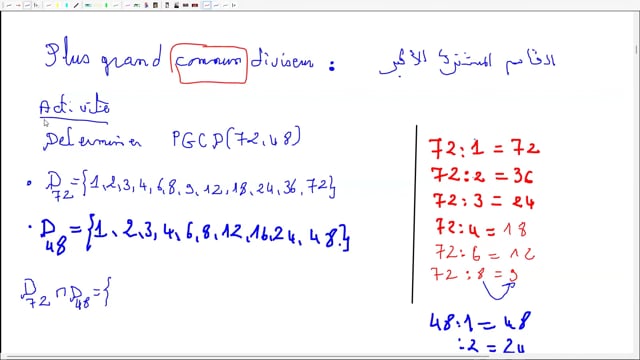 Plus grand commun diviseur : القاسم المشترك الأكبر
Activité
Determiner PGCD(72,48)
• D72={1,2,3,4,6,8,9,12,18,24,36,72}
• D48={1,2,3,4,6,8,12,16,24,48.}
D72∩D48={
72:1=72
72:2=36
72:3=24
72:4=18
72:6=12
72:8=9
48:1=48
:2=24